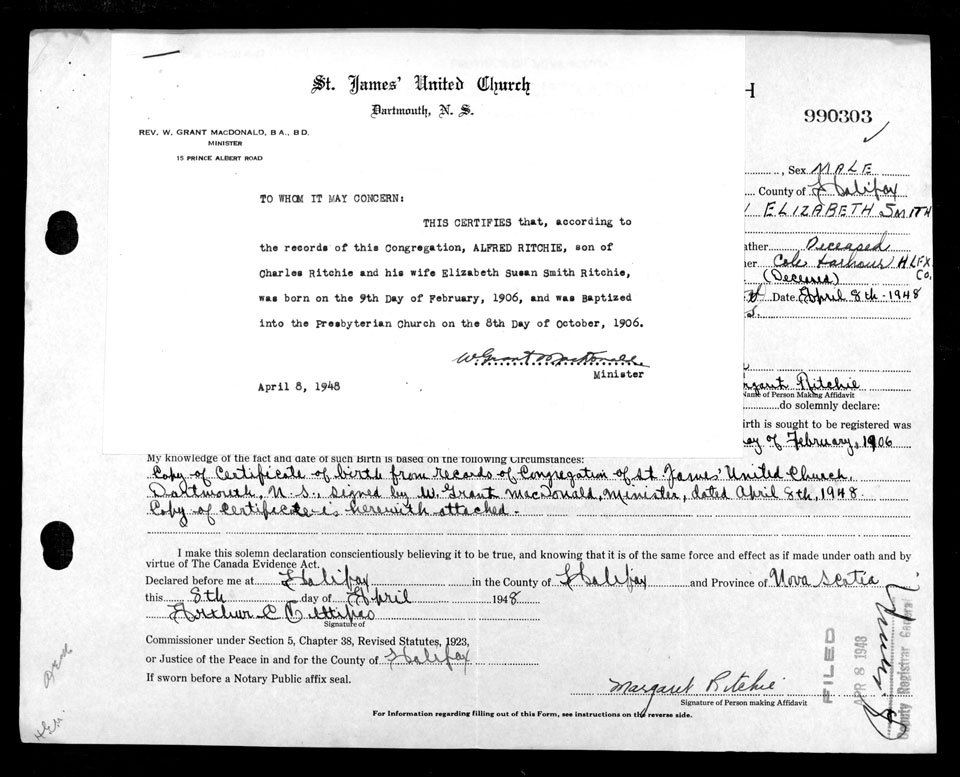 St. James' United Church
Dartmouth, N. S.
REV. W. GRANT MACDONALD, B A., B D.
MINISTER
15 PRINCE ALBERT ROAD
TO WHOM IT MAY CONCERN:
THIS CERTIFIES that, according to
the records of this Congregation, ALFRED RITCHIE, son of
Charles Ritchie and his wife Elizabeth Susan Smith Ritchie,
was born on the 9th Day of February, 1906, and was Baptized
into the Presbyterian Church on the 8th Day of October, 1906.
W. Grant MacDonald
Minister
April 8, 1948
H
990303
, Sex MALE
County of Halifax
ELIZABETH SMITH
ather Deceased
er Cole Harbour HLFX
Co.
(Deceased)
Date April 8th - 1948
rgaret Ritchie
Name of Person Making Affidavit
do solemnly declare:
irth is sought to be registered was
ay of February, 1906
My knowledge of the fact and date of such Birth is based on the following Circumstances:
Copy of Certificate of birth from records of Congregation of St James' United Church,
Dartmouth, N. S., signed by W. Grant MacDonald, Minister, dated April 8th, 1948
Copy of Certificate is herewith attached -
I make this solemn declaration conscientiously believing it to be true, and knowing that it is of the same force and effect as if made under oath and by
virtue of The Canada Evidence Act.
Declared before me at Halifax in the County of Halifax and Province of Nova Scotia
this 8th day of April 1948
Arthur C
Signature of
Commissioner under Section 5, Chapter 38, Revised Statutes, 1923,
or Justice of the Peace in and for the County of Halifax
If sworn before a Notary Public affix seal.
Margaret Ritchie
Signature of Person making Affidavit
For Information regarding filling out of this Form, see instructions on the reverse side.
FILED
APR 8 1948
Deputy Registrar General